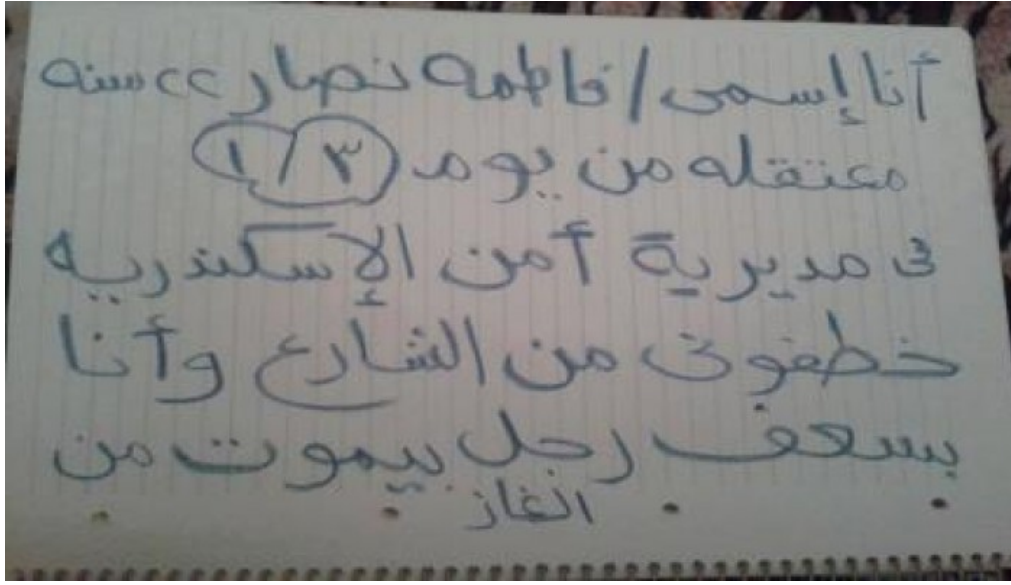 أنا إسمى / فاطمه نصار ٢٢ سنه
معتقله من يوم (٣ / ١)
فى مديرية أمن الإسكندريه
خطفونى من الشارع وأنا
بسعف رجل بيموت من
الغاز